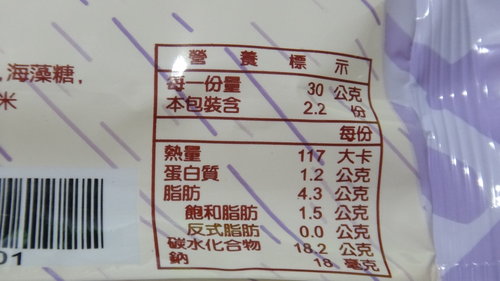 ,海藻糖,
米
營養標示
每一份量 30 公克
本包裝含 2.2 份
每份
熱量 117 大卡
蛋白質 1.2 公克
脂肪 4.3 公克
飽和脂肪 1.5 公克
反式脂肪 0.0 公克
碳水化合物 18.2 公克
鈉 18 毫克
01